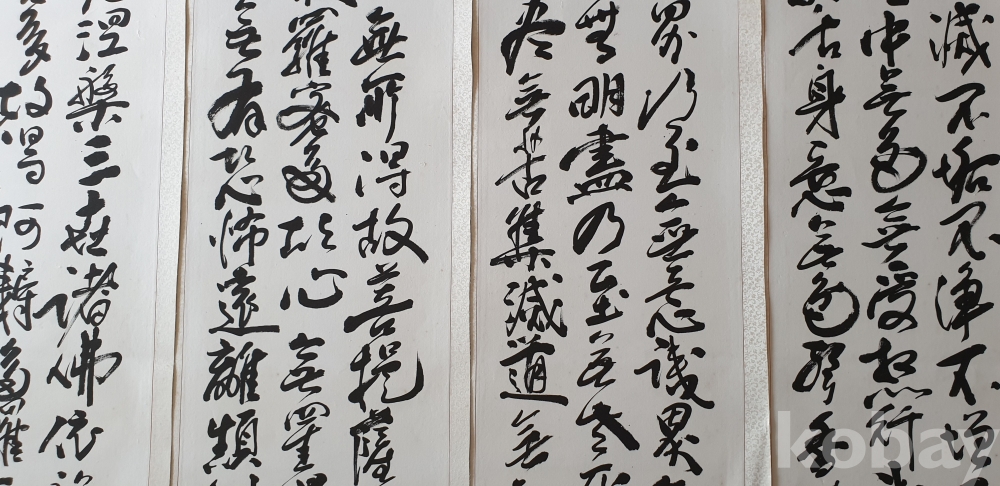 減不垢不淨不增
中無色無受想行
舌身意無色聲香
界乃至無意識界
無明盡乃至無老死
盡無苦集滅道無
無所得故菩提薩
羅蜜多故心無罣
無有恐怖遠離顛
涅槃三世諸佛依
多故得阿耨多羅
kobay